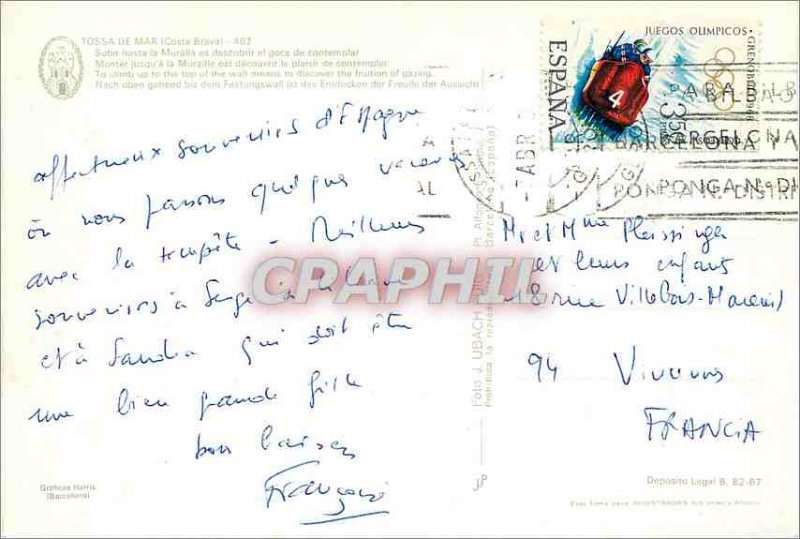 TOSSA DE MAR (Costa Brava) - 462
Subir hasta la Muralla es descubrir el goce de contemplar
Monter jusqu'à la Muraille est découvrir le plaisir de contempler
To climb up to the top of the wall means to discover the fruition of gazing.
Nach oben gehend bis dem Festungswall ist das Entdecken der Freude der Aussicht
affectueux souvenirs d'Espagne
où nous passons quelques vacances
avec la tempête - Meilleurs
souvenirs à Serge
et à Sandra qui doit être
une bien grande fille
bons baisers
Françoise
Gráficas Harris.
(Barcelona)
Foto J. UBACH
JUEGOS OLIMPICOS
GRENOBLE 1968
ESPAÑA
4
3'50
ABR
PARA
BARCELONA Y
PONGA N. DISTRI
CPAPHIL
Mr et Mme Pleissinger
et leurs enfants
18 rue Villebois-Mareuil
94
FRANCIA
Depósito Legal B. 82-67